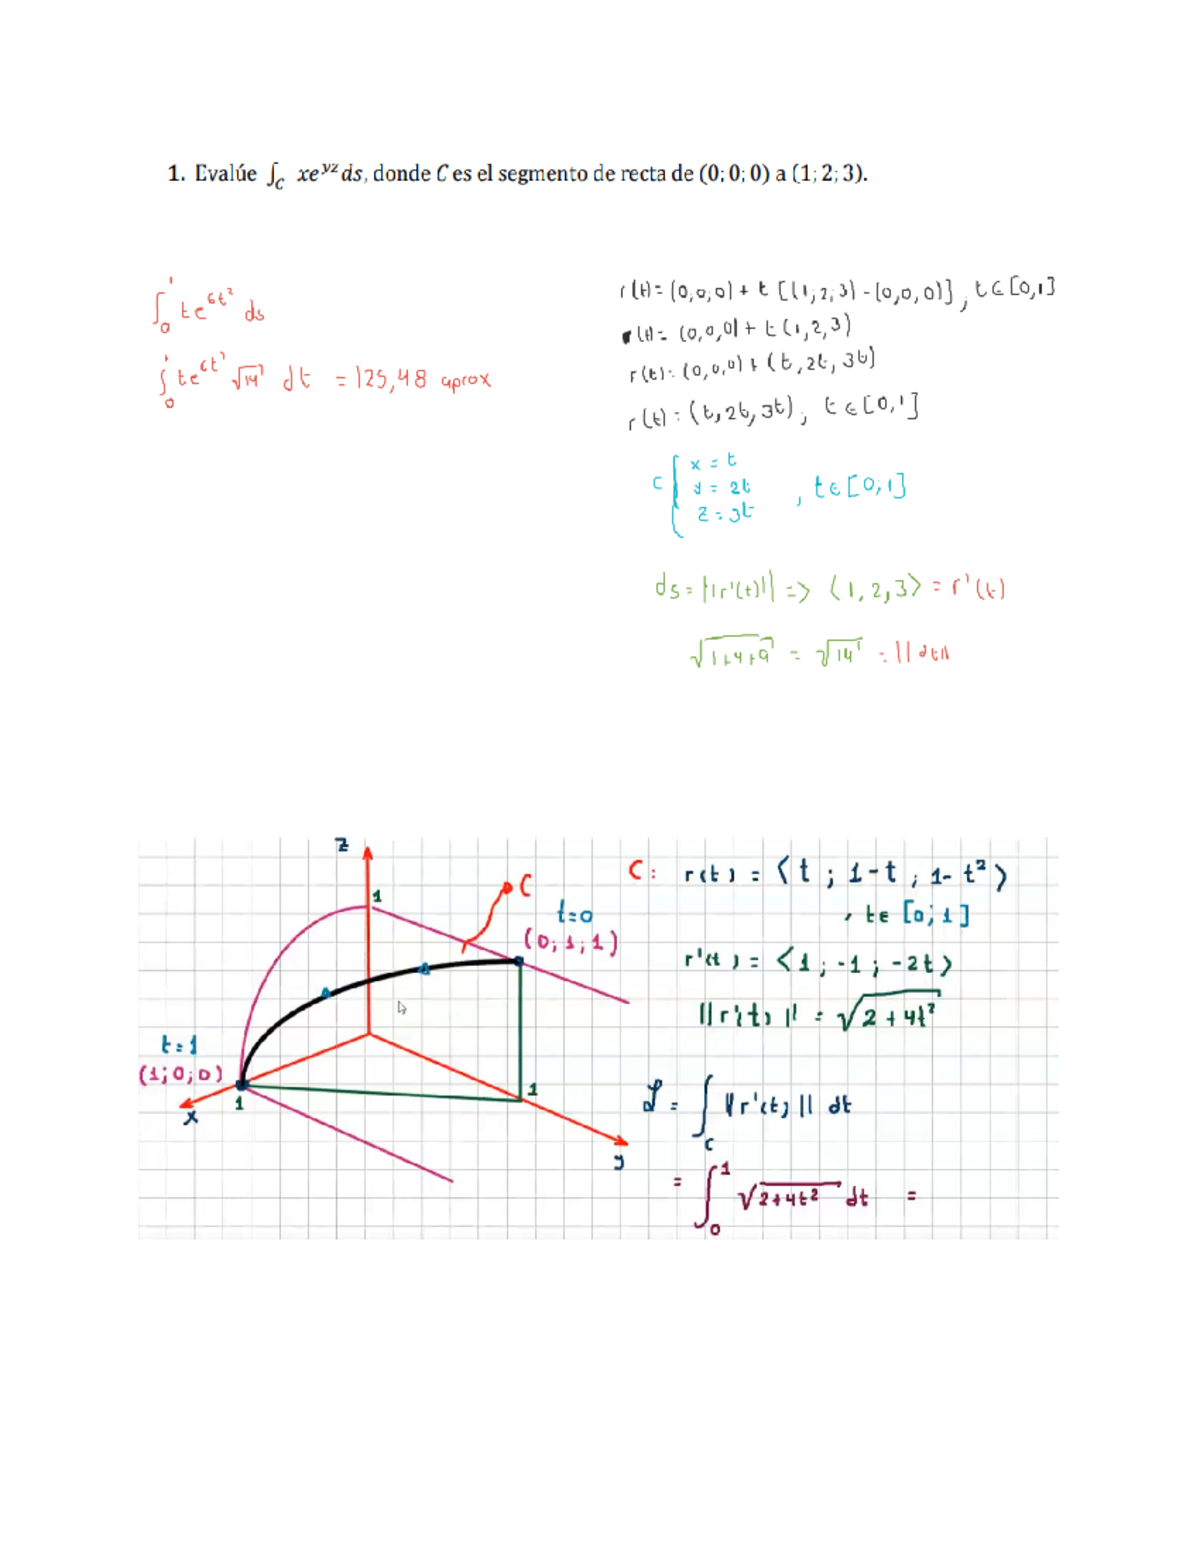 1. Evalúe ∫_C xe^{yz} ds, donde C es el segmento de recta de (0; 0; 0) a (1; 2; 3).
∫_0^1 te^{6t²} ds
∫_0^1 te^{6t²} √14 dt = 125,48 aprox
r(t) = (0,0,0) + t [(1,2,3) - (0,0,0)], t ∈ [0,1]
r(t) = (0,0,0) + t(1,2,3)
r(t) = (0,0,0) + (t, 2t, 3t)
r(t) = (t, 2t, 3t), t ∈ [0,1]
C { x = t
y = 2t , t ∈ [0;1]
z = 3t
ds = ||r'(t)|| => ⟨1,2,3⟩ = r'(t)
√1+4+9 = √14 =
z
1
C
t=0
(0;1;1)
t=1
(1;0;0)
x
1
1
y
C: r(t) = ⟨t ; 1-t ; 1-t²⟩
, t∈ [0;1]
r'(t) = ⟨1 ; -1 ; -2t⟩
||r'(t)|| = √2+4t²
L = ∫_C ||r'(t)|| dt
= ∫_0^1 √2+4t² dt =